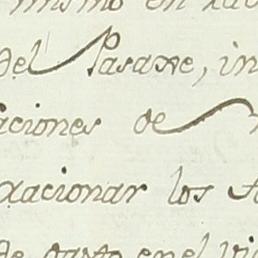 mismo en
del Pasaxe, in
aciones de
xacionar los
de gasto en el